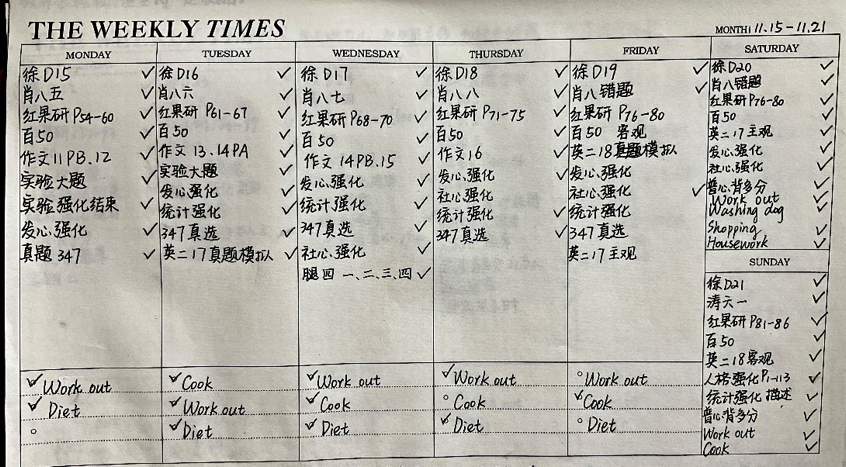 THE WEEKLY TIMES
MONTH: 11.15-11.21
MONDAY
徐D15 ✓
肖八五 ✓
红果研 P54-60 ✓
百50 ✓
作文11PB.12 ✓
实验大题 ✓
实验强化结果 ✓
发心.强化 ✓
真题 347 ✓
✓ Work out
✓ Diet
TUESDAY
徐D16 ✓
肖八六 ✓
红果研 P61-67 ✓
百50 ✓
作文 13.14PA ✓
实验大题 ✓
发心.强化 ✓
统计强化 ✓
347真选 ✓
英二17真题模拟 ✓
✓ Cook
✓ Work out
✓ Diet
WEDNESDAY
徐D17 ✓
肖八七 ✓
红果研 P68-70 ✓
百50 ✓
作文 14PB.15 ✓
发心.强化 ✓
统计强化 ✓
347真选 ✓
社心.强化 ✓
腿四 一、二、三、四 ✓
✓ Work out
✓ Cook
✓ Diet
THURSDAY
徐D18 ✓
肖八八 ✓
红果研 P71-75 ✓
百50 ✓
作文16 ✓
发心.强化 ✓
社心强化 ✓
统计强化 ✓
347真选 ✓
✓ Work out
Cook
✓ Diet
FRIDAY
徐D19 ✓
肖八错题 ✓
红果研 P76-80
百50 客观
英二18真题模拟
发心.强化
社心.强化 ✓
统计强化
347真选
英二17主观
Work out
✓ Cook
Diet
SATURDAY
徐D20 ✓
肖八错题 ✓
红果研P76-80 ✓
百50 ✓
英二17主观 ✓
发心.强化 ✓
社心.强化 ✓
普心背多分 ✓
Work out ✓
Washing dog ✓
Shopping ✓
Housework ✓
SUNDAY
徐D21 ✓
涛六一 ✓
红果研P81-86 ✓
百50 ✓
英二18客观 ✓
人格强化P1-113 ✓
统计强化 描述 ✓
普心.背多分 ✓
Work out ✓
Cook ✓